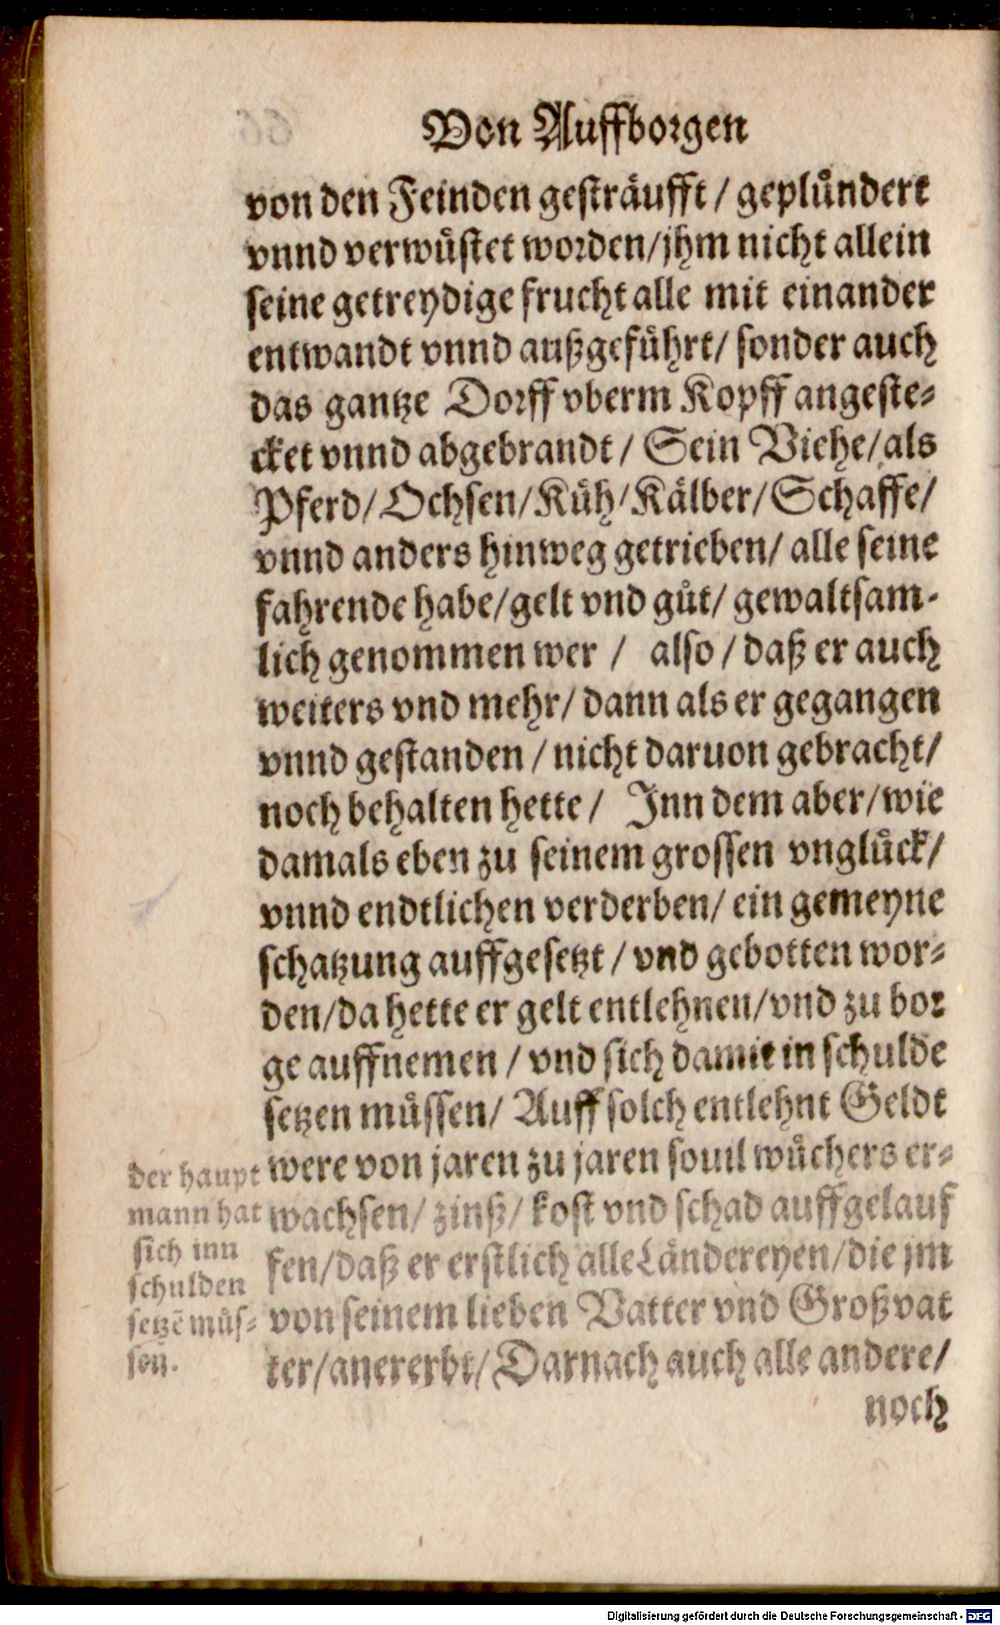 Von Auffborgen
von den Feinden gesträufft / geplündert
vnnd verwüstet worden/jhm nicht allein
seine getreydige frucht alle mit einander
entwandt vnnd außgeführt/ sonder auch
das gantze Dorff vberm Kopff angeste-
cket vnnd abgebrandt / Sein Viehe/als
Pferd/Ochsen/Küh/Kälber/Schaffe/
vnnd anders hinweg getrieben/ alle seine
fahrende habe/gelt vnd gůt/ gewaltsam-
lich genommen wer / also / daß er auch
weiters vnd mehr/ dann als er gegangen
vnnd gestanden / nicht daruon gebracht/
noch behalten hette / Jnn dem aber/wie
damals eben zu seinem grossen vnglück/
vnnd endtlichen verderben/ ein gemeyne
schatzung auffgesetzt / vnd gebotten wor-
den/da hette er gelt entlehnen/vnd zu bor
ge auffnemen / vnd sich damit in schulde
setzen müssen/ Auff solch entlehnt Geldt
were von jaren zu jaren souil wůchers er-
wachsen/ zinß/ kost vnd schad auffgelauf
fen/daß er erstlich alle Ländereyen/die jm
von seinem lieben Vatter vnd Großvat
ter/anererbt/ Darnach auch alle andere/
noch
der haupt
mann hat
sich inn
schulden
setzē müs-
sen.
Digitalisierung gefördert durch die Deutsche Forschungsgemeinschaft - DFG